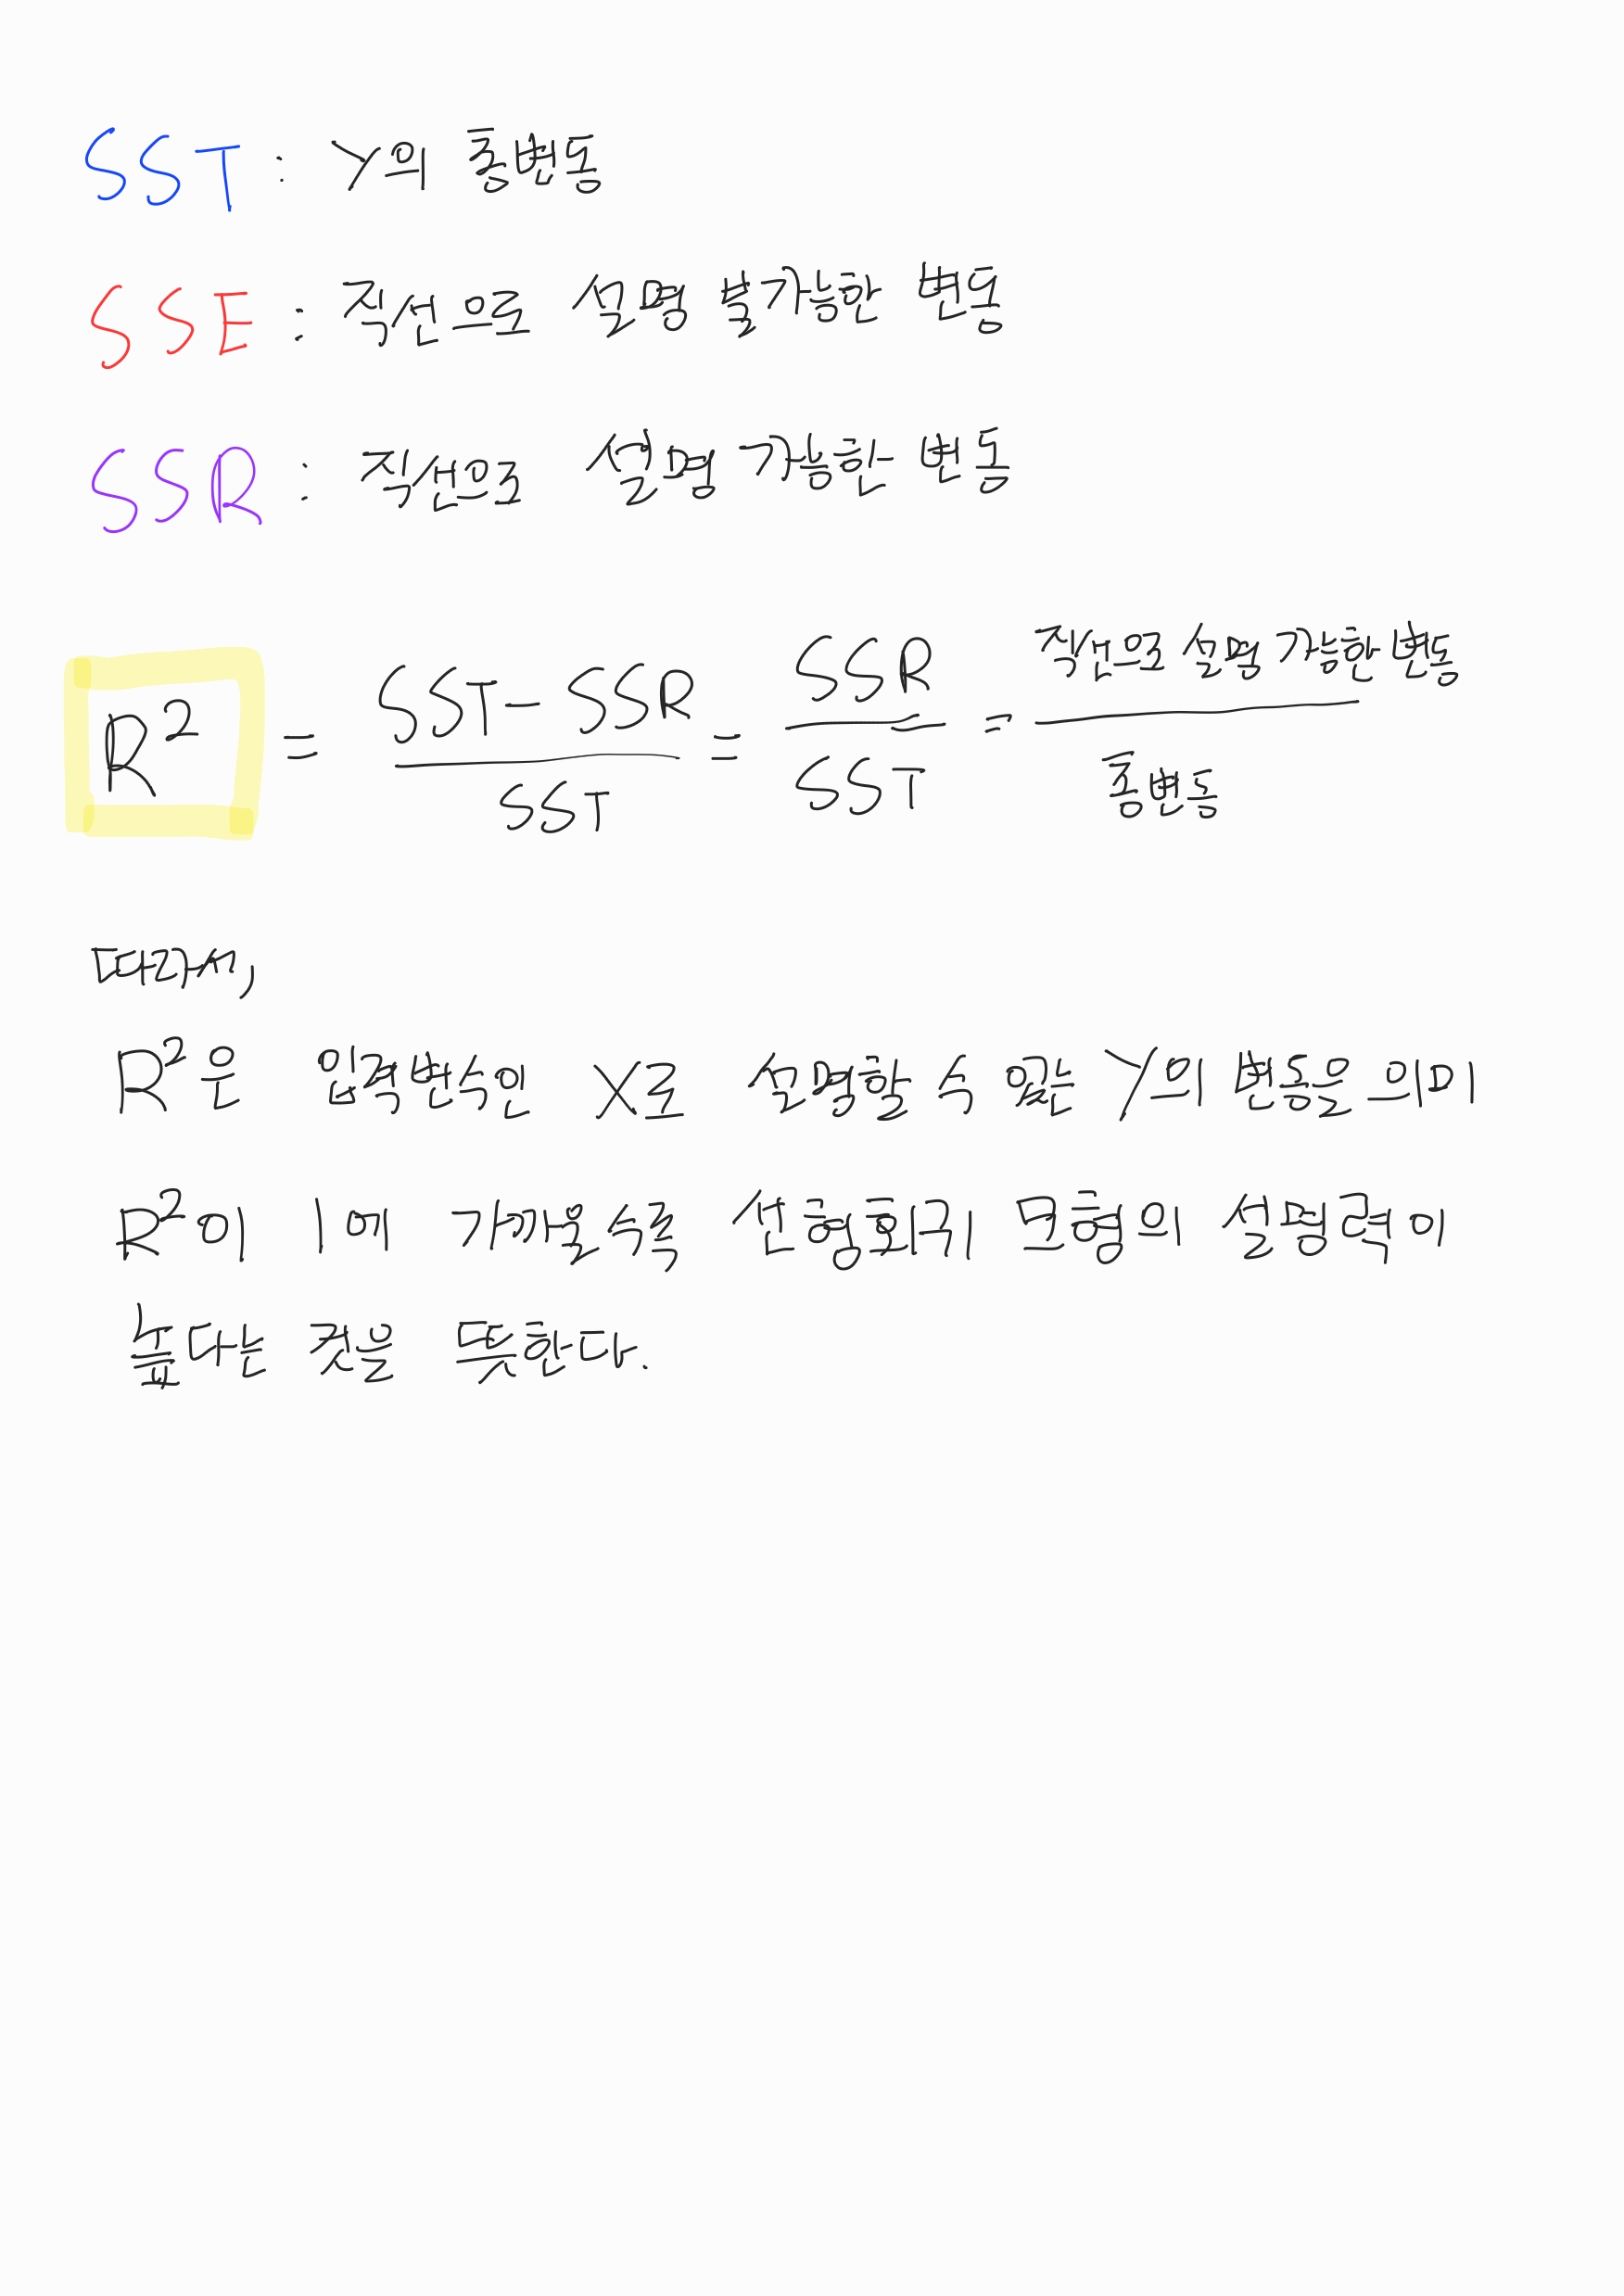 SST : Y의 총변동
SSE : 직선으로 설명 불가능한 변동
SSR : 직선으로 설명 가능한 변동
R² = (SST - SSR) / SST = SSR / SST = 직선으로 설명 가능한 변동 / 총변동
따라서,
R²은 입력변수인 X로 설명할 수 있는 Y의 변동을 의미
R²이 1에 가까울수록 선형회귀 모형의 설명력이
높다는 것을 뜻한다.